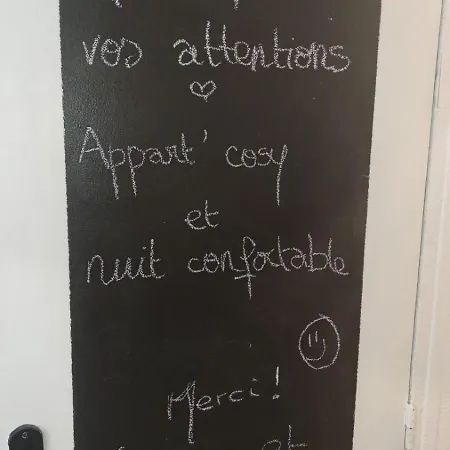 vos attentions
Appart' cosy
et
nuit confortable
Merci!
et